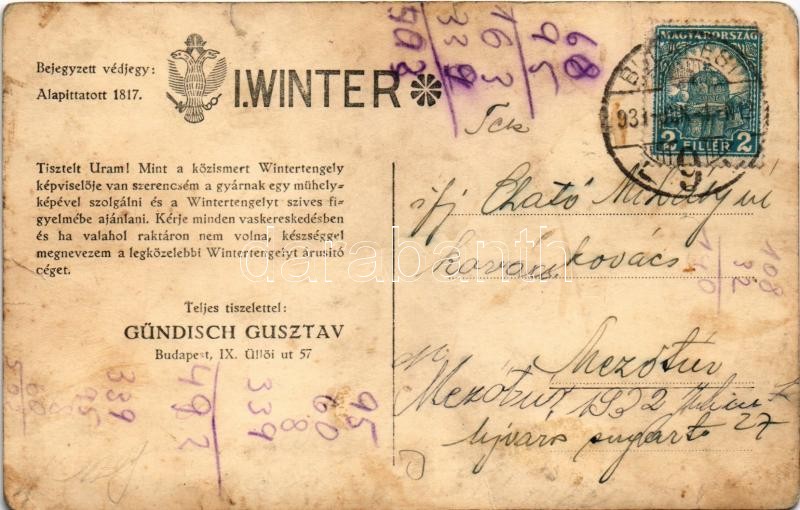 Bejegyzett védjegy:
Alapittatott 1817.
I.WINTER
Tisztelt Uram! Mint a közismert Wintertengely
képviselője van szerencsém a gyárnak egy műhely-
képével szolgálni és a Wintertengelyt szives fi-
gyelmébe ajánlani. Kérje minden vaskereskedésben
és ha valahol raktáron nem volna, készséggel
megnevezem a legközelebbi Wintertengelyt árusitó
céget.
Teljes tiszelettel:
GÜNDISCH GUSZTAV
Budapest, IX. Üllői ut 57
95
60
8
339
492
339
95
60
68
95
163
339
MAGYARORSZÁG
2 FILLÉR 2
BUDAPEST
931
9
Tek
ifj Cható Mihály
kovács
108
32
140
Mezőtúr
Mezőtur 1932 Julius
27
darabanth